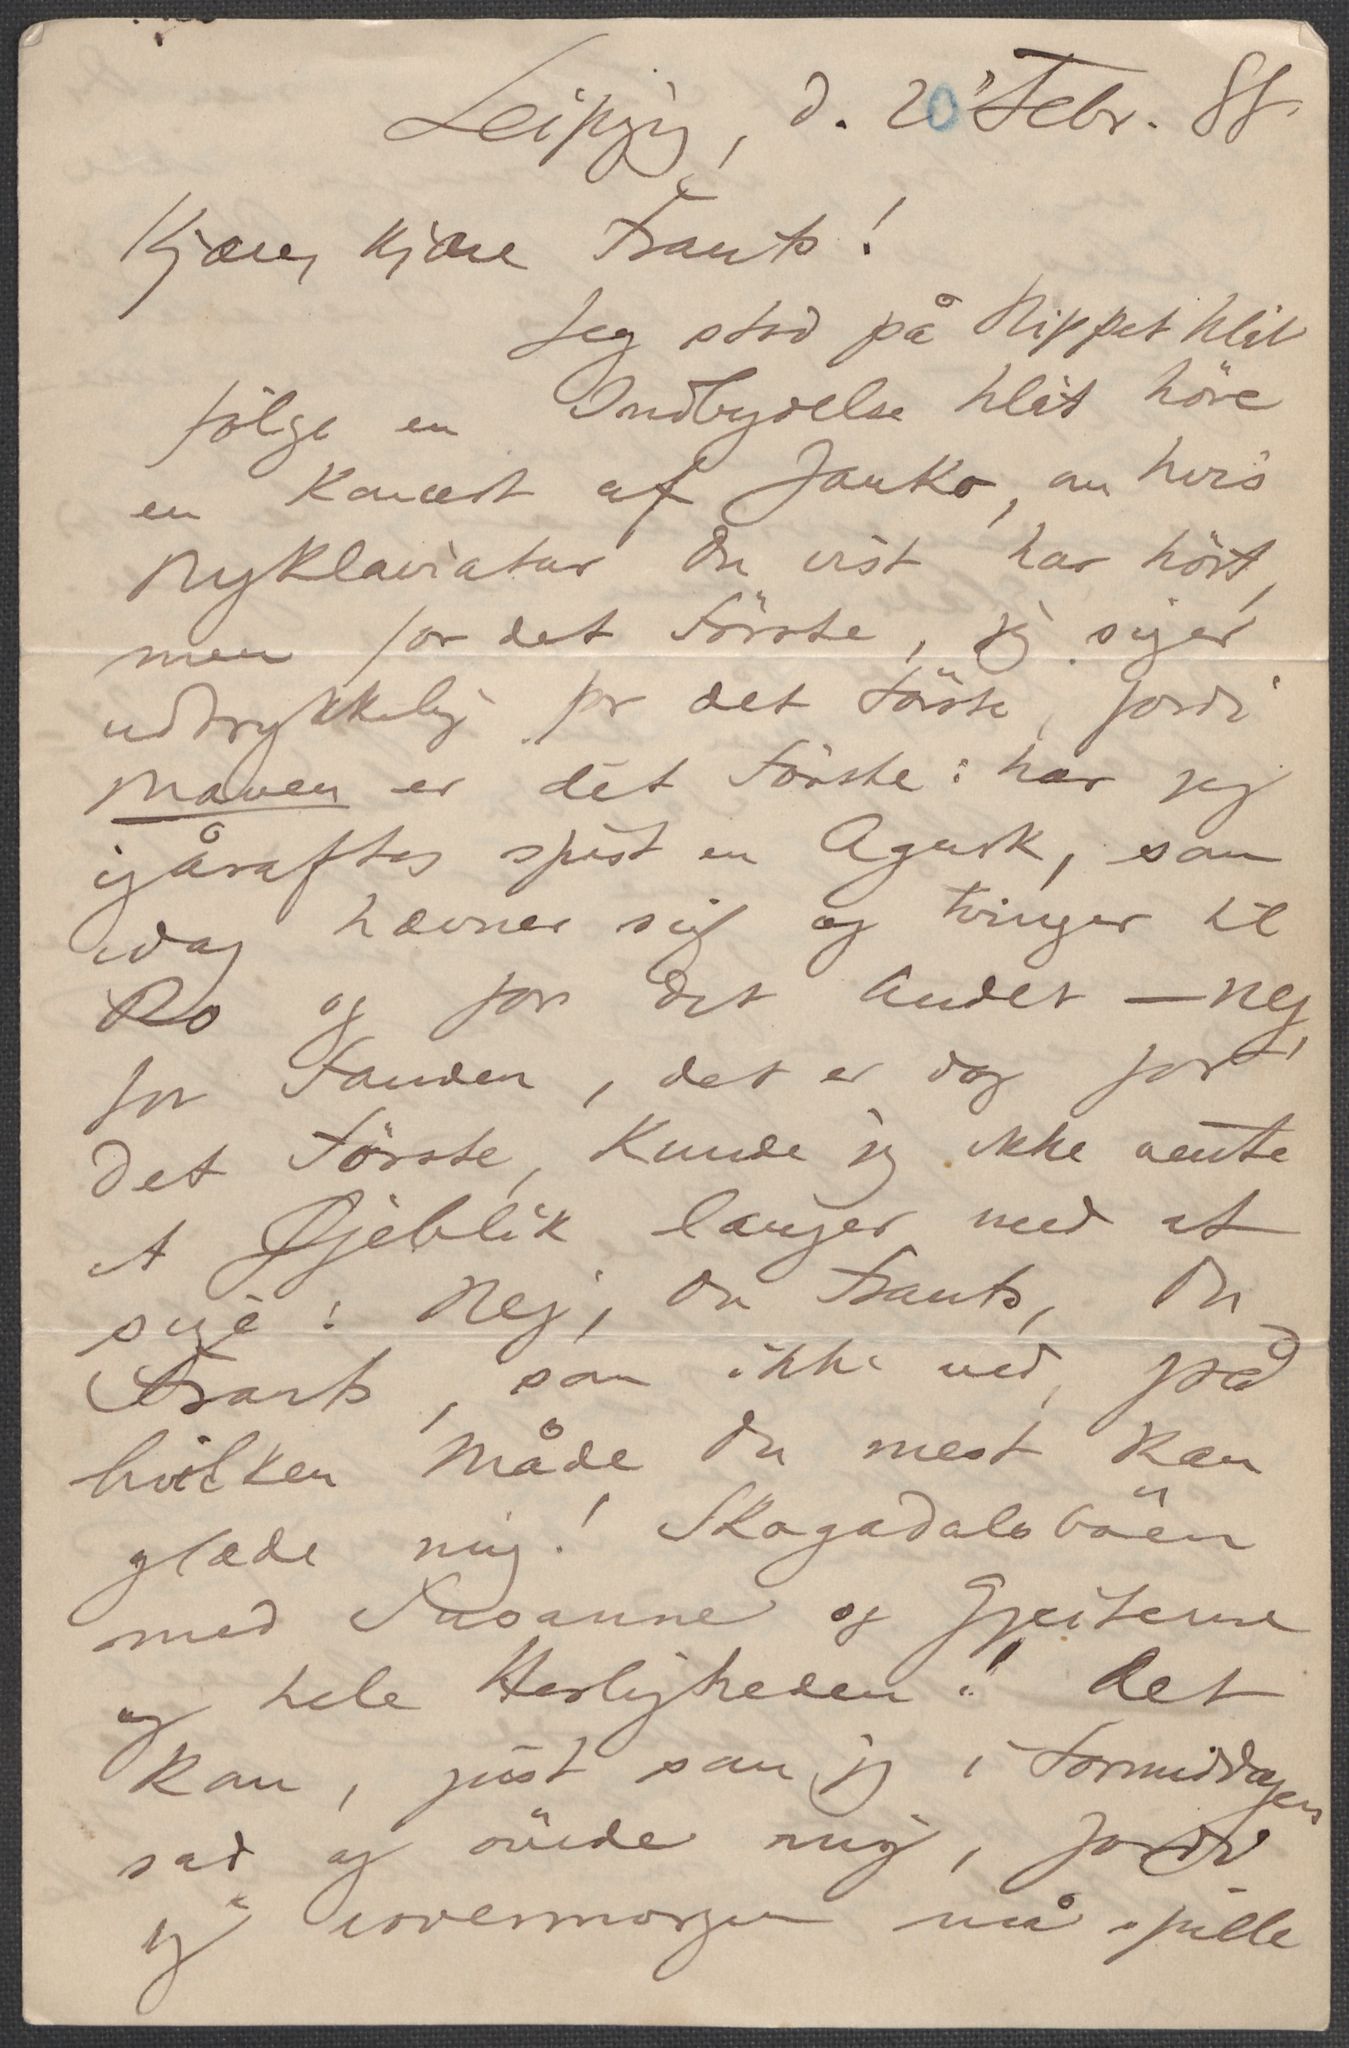 Leipzig, d. 20 Febr. 88
Kjære, kjære Frants!
Jeg stod på Nippet til at
følge en Indbydelse til at höre
en Koncert af Janko, om hvis
Nyklaviatur Du vist har hört,
men for det Förste, jeg siger
udtrykkelig for det Förste, fordi
Maven er det Förste: har jeg
igåraftes spist en Agurk, som
idag hævner sig og tvinger til
Ro og for det Andet – nej,
for Fanden, det er dog for
det Förste, kunde jeg ikke vente
et Øjeblik længer med at
sige: Nej, Du Frants, Du
Frants, som ikke ved, på
hvilken Måde Du mest kan
glæde mig! Skogadalsböen
med Susanne og Gjeiterne
og hele Herligheden! Det
kom, just som jeg i Formiddages
sad og övede mig, fordi
jeg iovermorgen må spille